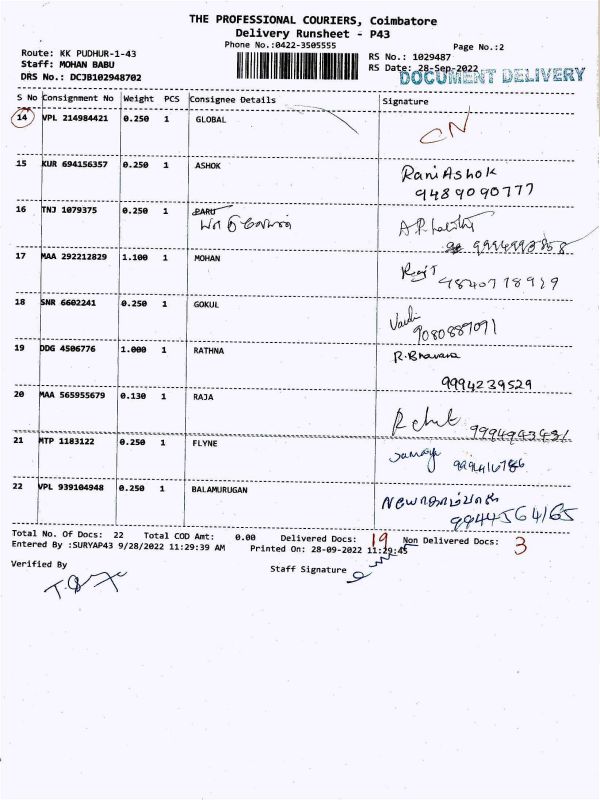 THE PROFESSIONAL COURIERS, Coimbatore
Delivery Runsheet - P43
Phone No.:0422-3505555
Page No.:2
Route: KK PUDHUR-1-43
RS No.: 1029487
Staff: MOHAN BABU
RS Date: 28-Sep-2022
DRS No.: DCJB102948702
DOCUMENT DELIVERY
S No Consignment No Weight PCS Consignee Details Signature
14 VPL 214984421 0.250 1 GLOBAL CN
15 KUR 694156357 0.250 1 ASHOK Rani Ashok
9489090777
16 TNJ 1079375 0.250 1 PARU
17 MAA 292212829 1.100 1 MOHAN
9840778929
18 SNR 6602241 0.250 1 GOKUL
9080887091
19 DDG 4506776 1.000 1 RATHNA R.Bhavana
9994239529
20 MAA 565955679 0.130 1 RAJA
21 MTP 1183122 0.250 1 FLYNE
22 VPL 939104948 0.250 1 BALAMURUGAN
9944564165
Total No. Of Docs: 22 Total COD Amt: 0.00 Delivered Docs: 19 Non Delivered Docs: 3
Entered By :SURYAP43 9/28/2022 11:29:39 AM Printed On: 28-09-2022 11:29:45
Verified By
Staff Signature